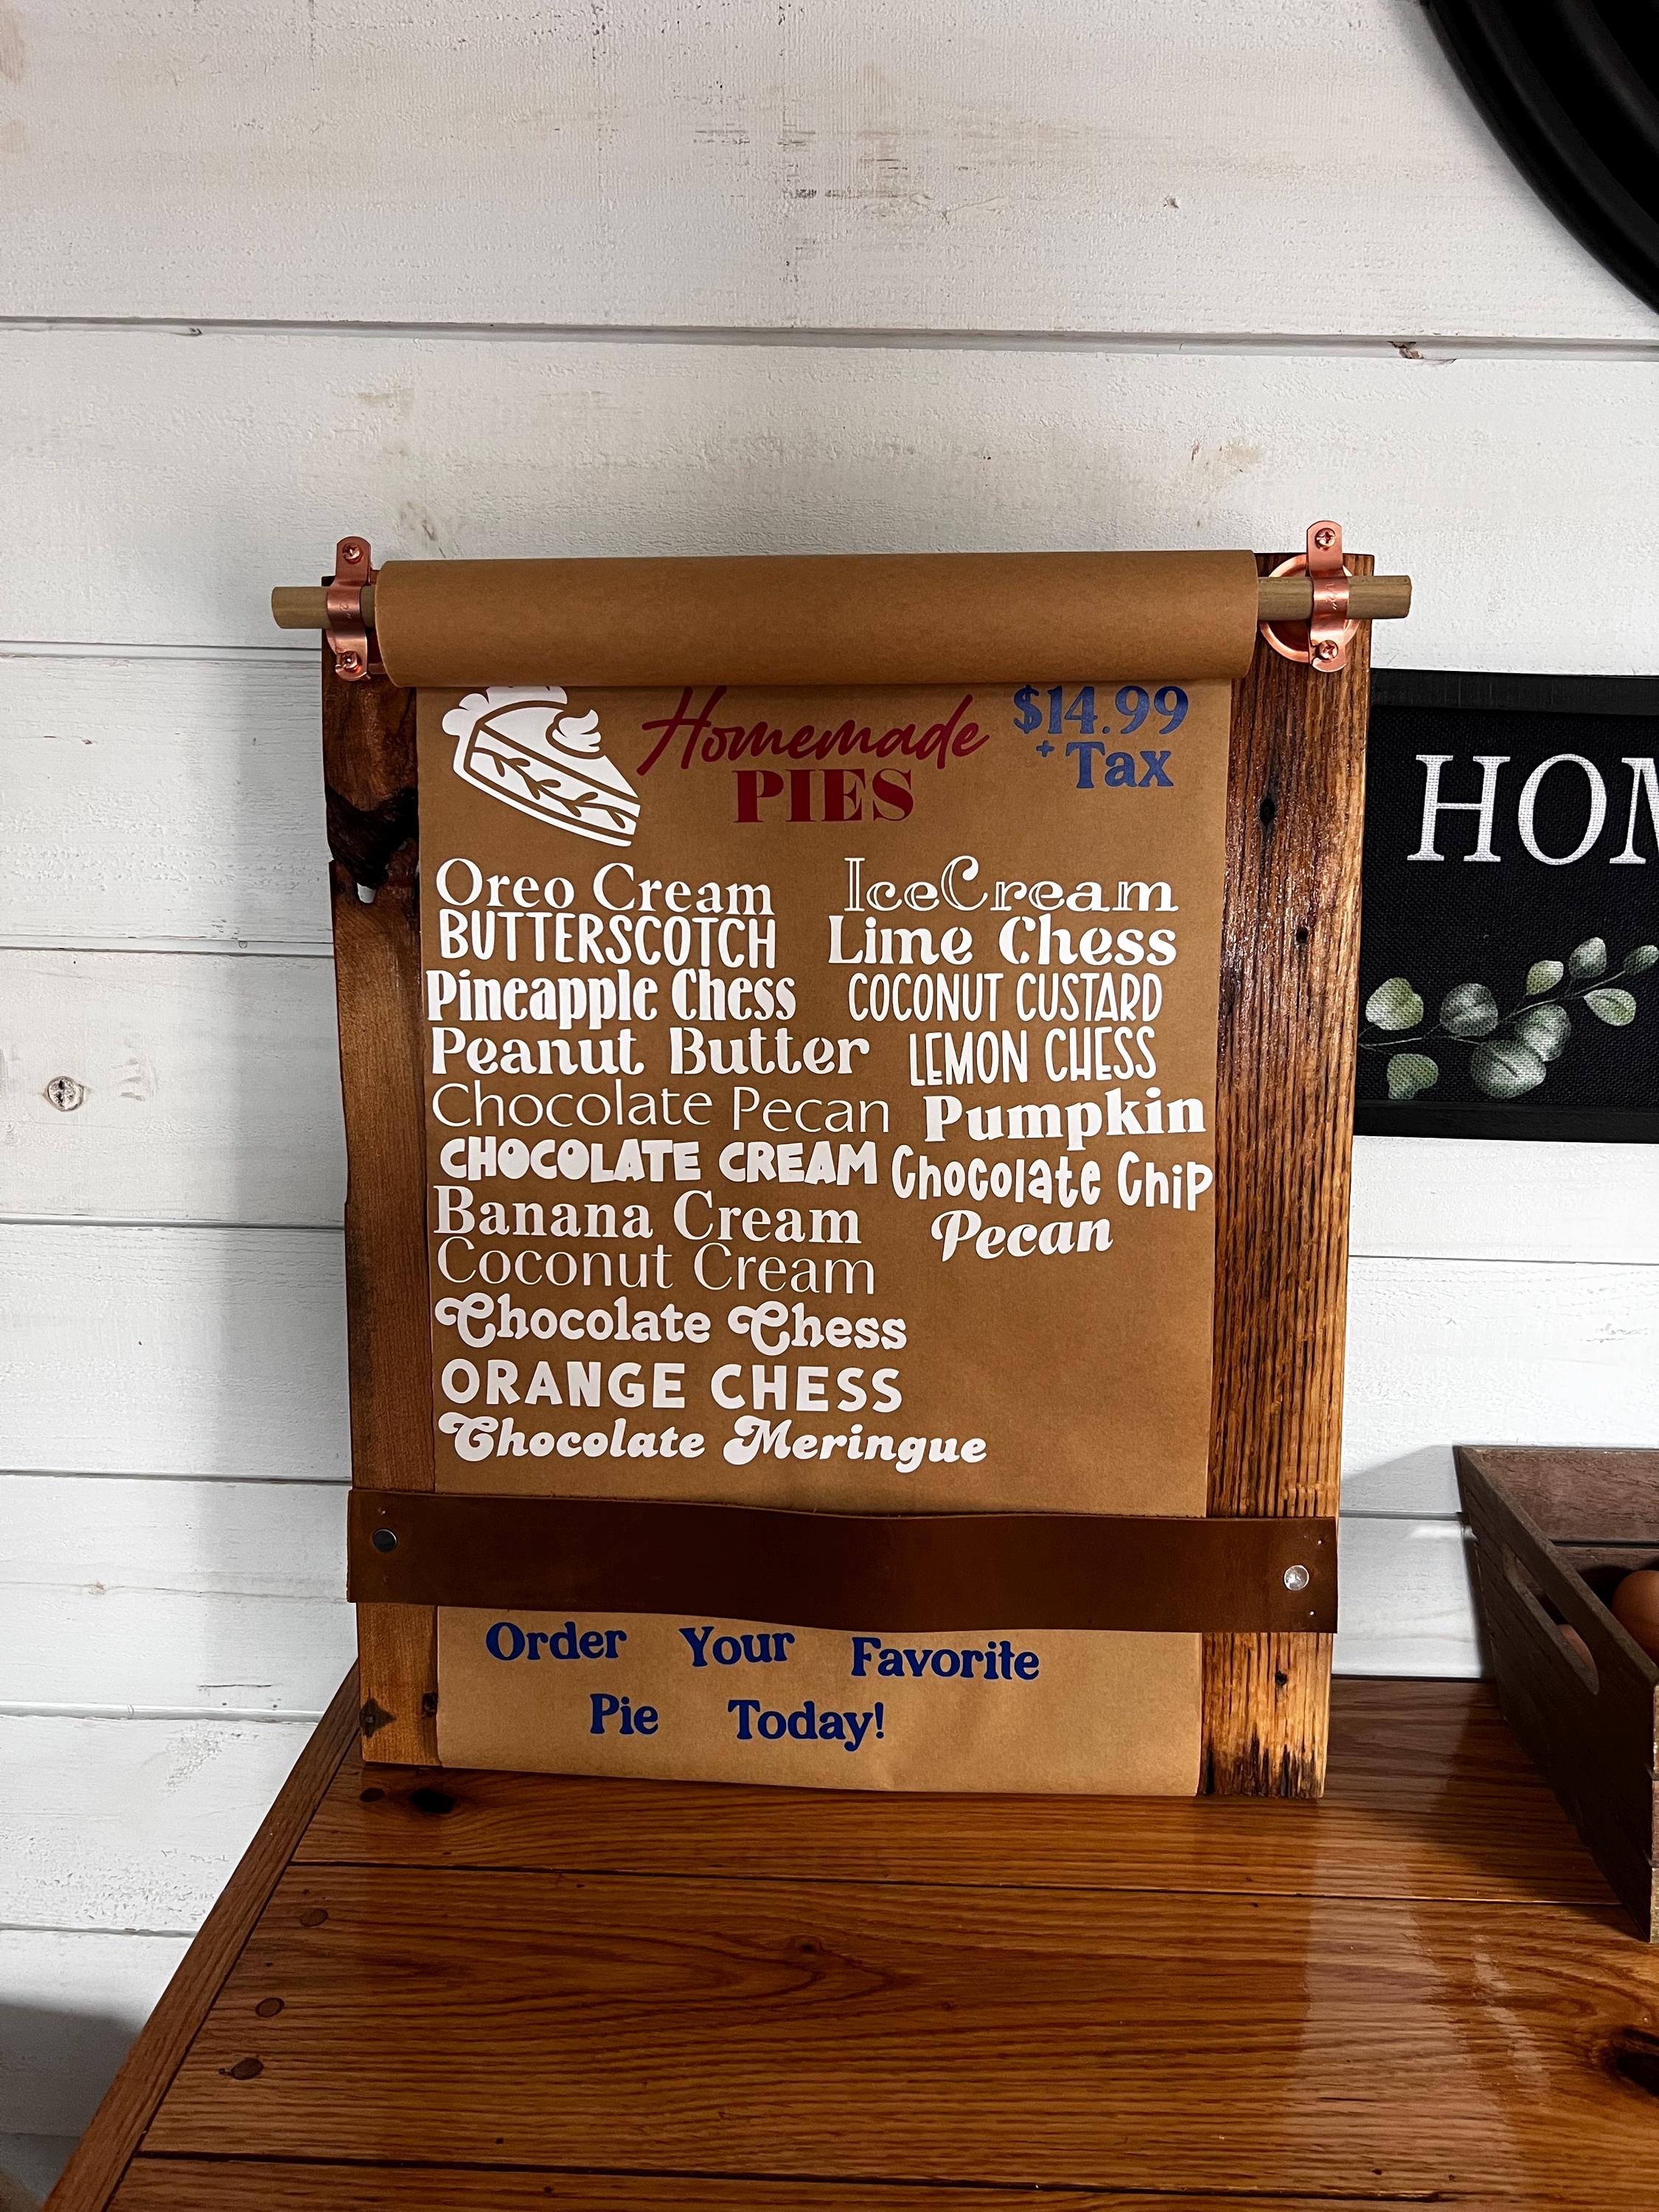 Homemade
PIES
$14.99
+ Tax
Oreo Cream
BUTTERSCOTCH
Pineapple Chess
Peanut Butter
Chocolate Pecan
CHOCOLATE CREAM
Banana Cream
Coconut Cream
Chocolate Chess
ORANGE CHESS
Chocolate Meringue
IceCream
Lime Chess
COCONUT CUSTARD
LEMON CHESS
Pumpkin
Chocolate Chip
Pecan
Order Your Favorite
Pie Today!